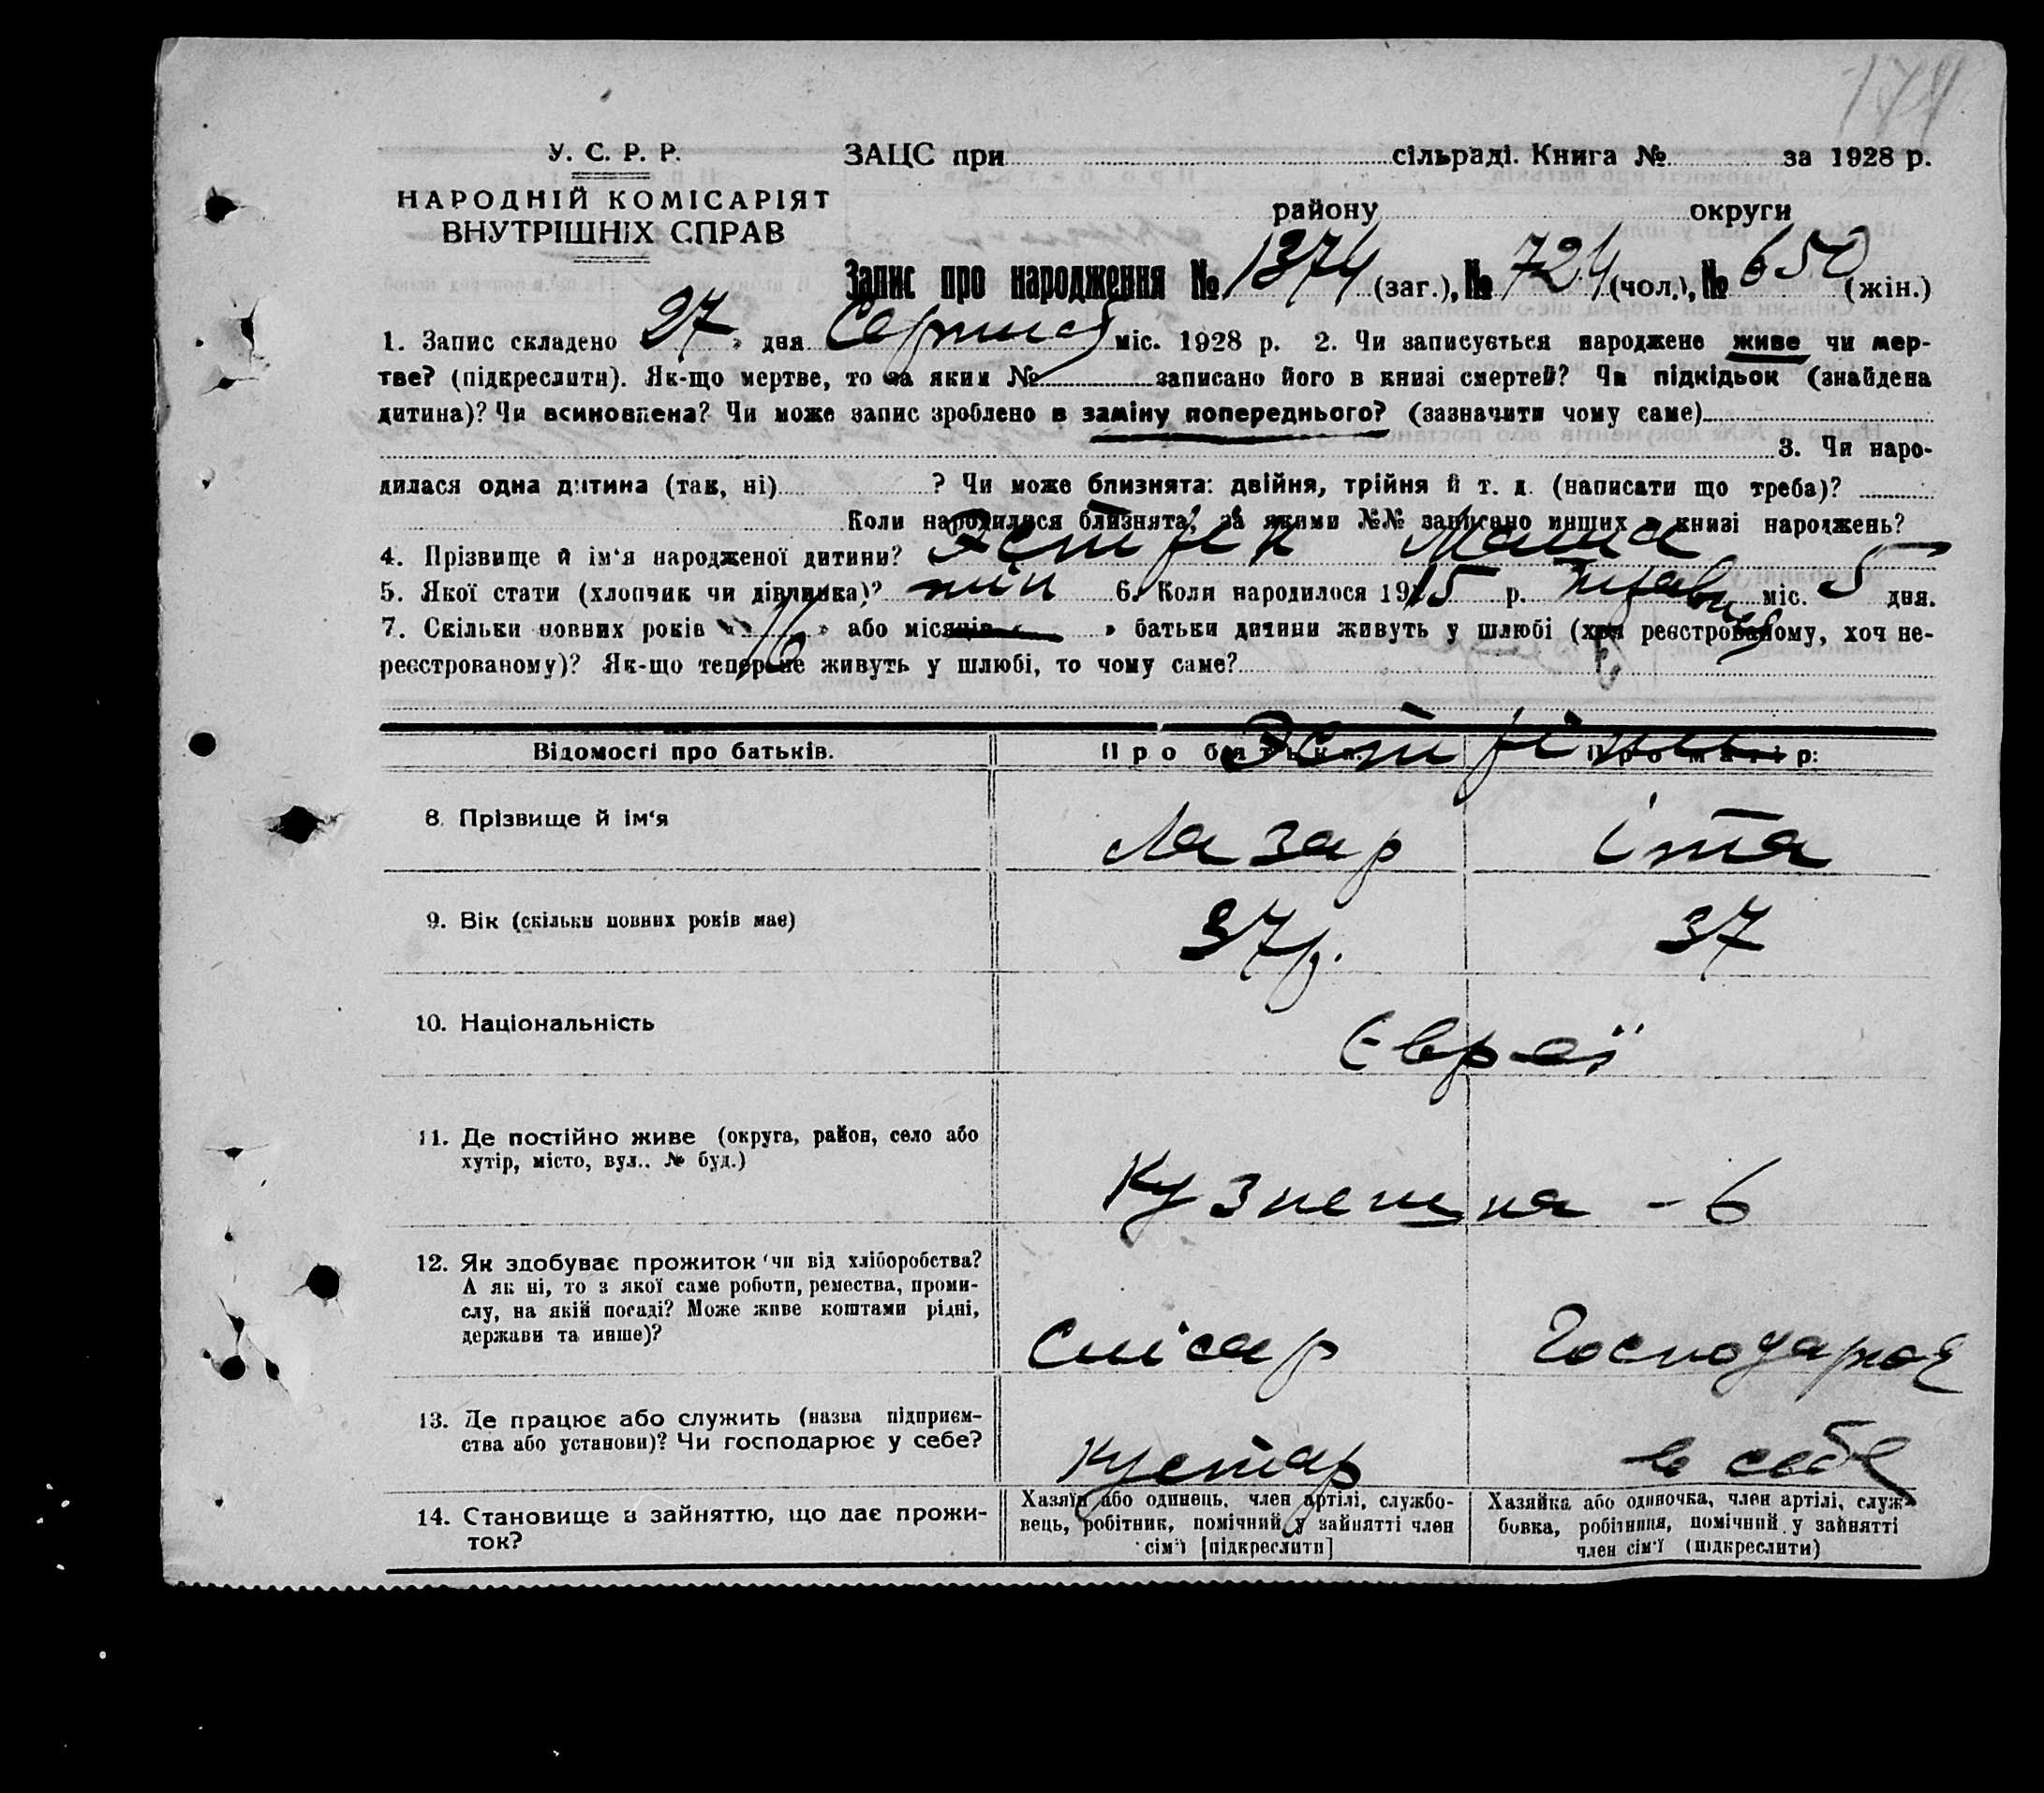 174
У. С. Р. Р.
НАРОДНІЙ КОМІСАРІЯТ
ВНУТРІШНІХ СПРАВ
ЗАЦС при сільраді. Книга № за 1928 р.
району округи
Запис про народження № 1374 (заг.), № 724 (чол.), № 650 (жін.)
1. Запис складено 27 » дня Серпня міс. 1928 р. 2. Чи записується народжене живе чи мер-
тве? (підкреслити). Як-що мертве, то за яким № записано його в книзі смертей? Чи підкідьок (знайдена
дитина)? Чи всиновлена? Чи може запис зроблено в заміну попереднього? (зазначити чому саме)
3. Чи наро-
дилася одна дитина (так, ні) ? Чи може близнята: двійня, трійня й т. д. (написати що треба)?
Коли народилися близнята, за якими №№ записано инших в книзі народжень?
4. Прізвище й ім'я народженої дитини? Маша
5. Якої стати (хлопчик чи дівчинка)? жін 6. Коли народилося 1915 р. Травня міс. 5 дня.
7. Скільки повних років « 16 » або місяців « » батьки дитини живуть у шлюбі (хоч реєстрованому, хоч не-
реєстрованому)? Як-що тепер не живуть у шлюбі, то чому саме?
Відомості про батьків. Про батька: Про матір:
8. Прізвище й ім'я Лазар Іта
9. Вік (скільки повних років має) 37 р. 37
10. Національність Євреї
11. Де постійно живе (округа, район, село або
хутір, місто, вул.. № буд.)
Кузнешна - 6
12. Як здобуває прожиток (чи від хліборобства?
А як ні, то з якої саме роботи, ремества, проми-
слу, на якій посаді? Може живе коштами рідні,
держави та инше)?
Слісар Господарює
13. Де працює або служить (назва підприєм-
ства або установи)? Чи господарює у себе?
Кустар в себе
14. Становище в зайняттю, що дає прожи-
ток?
Хазяїн або одинець, член артілі, службо-
вець, робітник, помічний у зайнятті член
сім'ї [підкреслити]
Хазяйка або одиночка, член артілі, служ-
бовка, робітниця, помічний у зайнятті
член сім'ї (підкреслити)